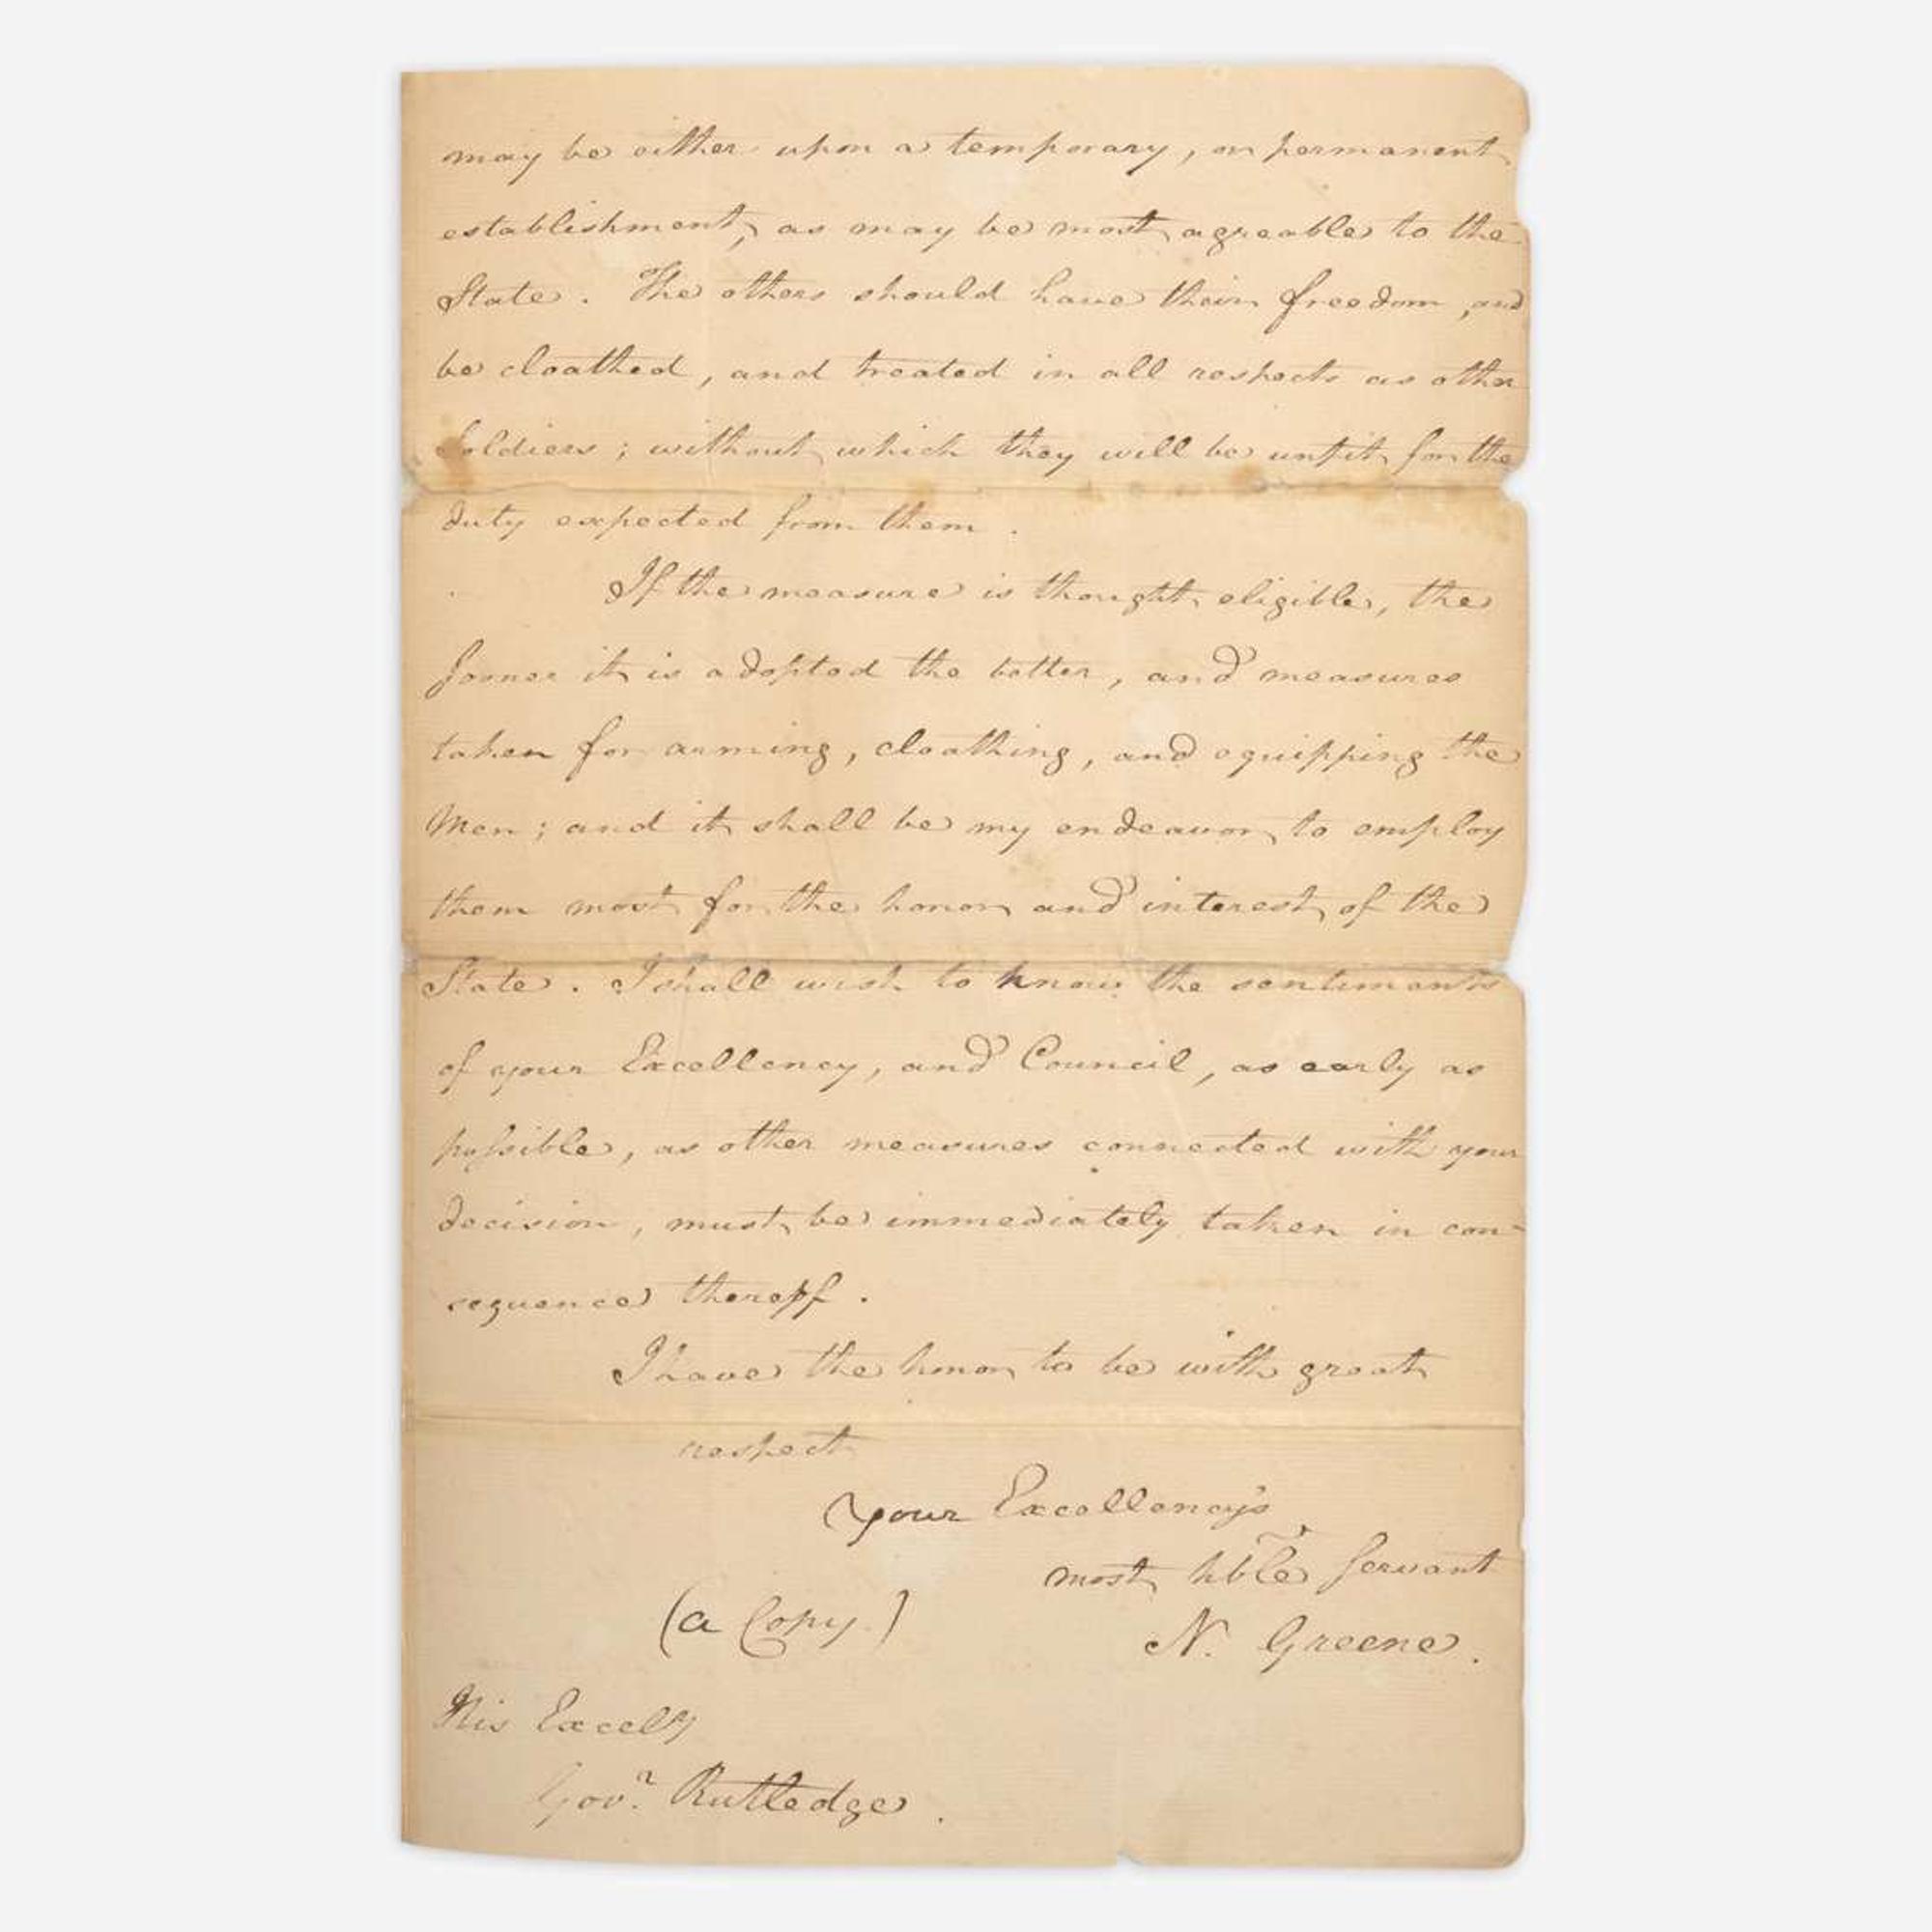 may be either upon a temporary, or permanent
establishment, as may be most agreable to the
State. The others should have their freedom, and
be cloathed, and treated in all respects as other
Soldiers; without which they will be unfit for the
duty expected from them.
If the measure is thought eligible, the
sooner it is adopted the better, and measures
taken for arming, cloathing, and equipping the
Men; and it shall be my endeavor to employ
them most for the honor and interest of the
State. I shall wish to know the sentiments
of your Excellency, and Council, as early as
possible, as other measures connected with your
decision, must be immediately taken in con-
sequence thereof.
I have the honor to be with great
respect
Your Excellency's
most hble servant
(a Copy.)
N. Greene.
His Excelly
Govr. Rutledge.